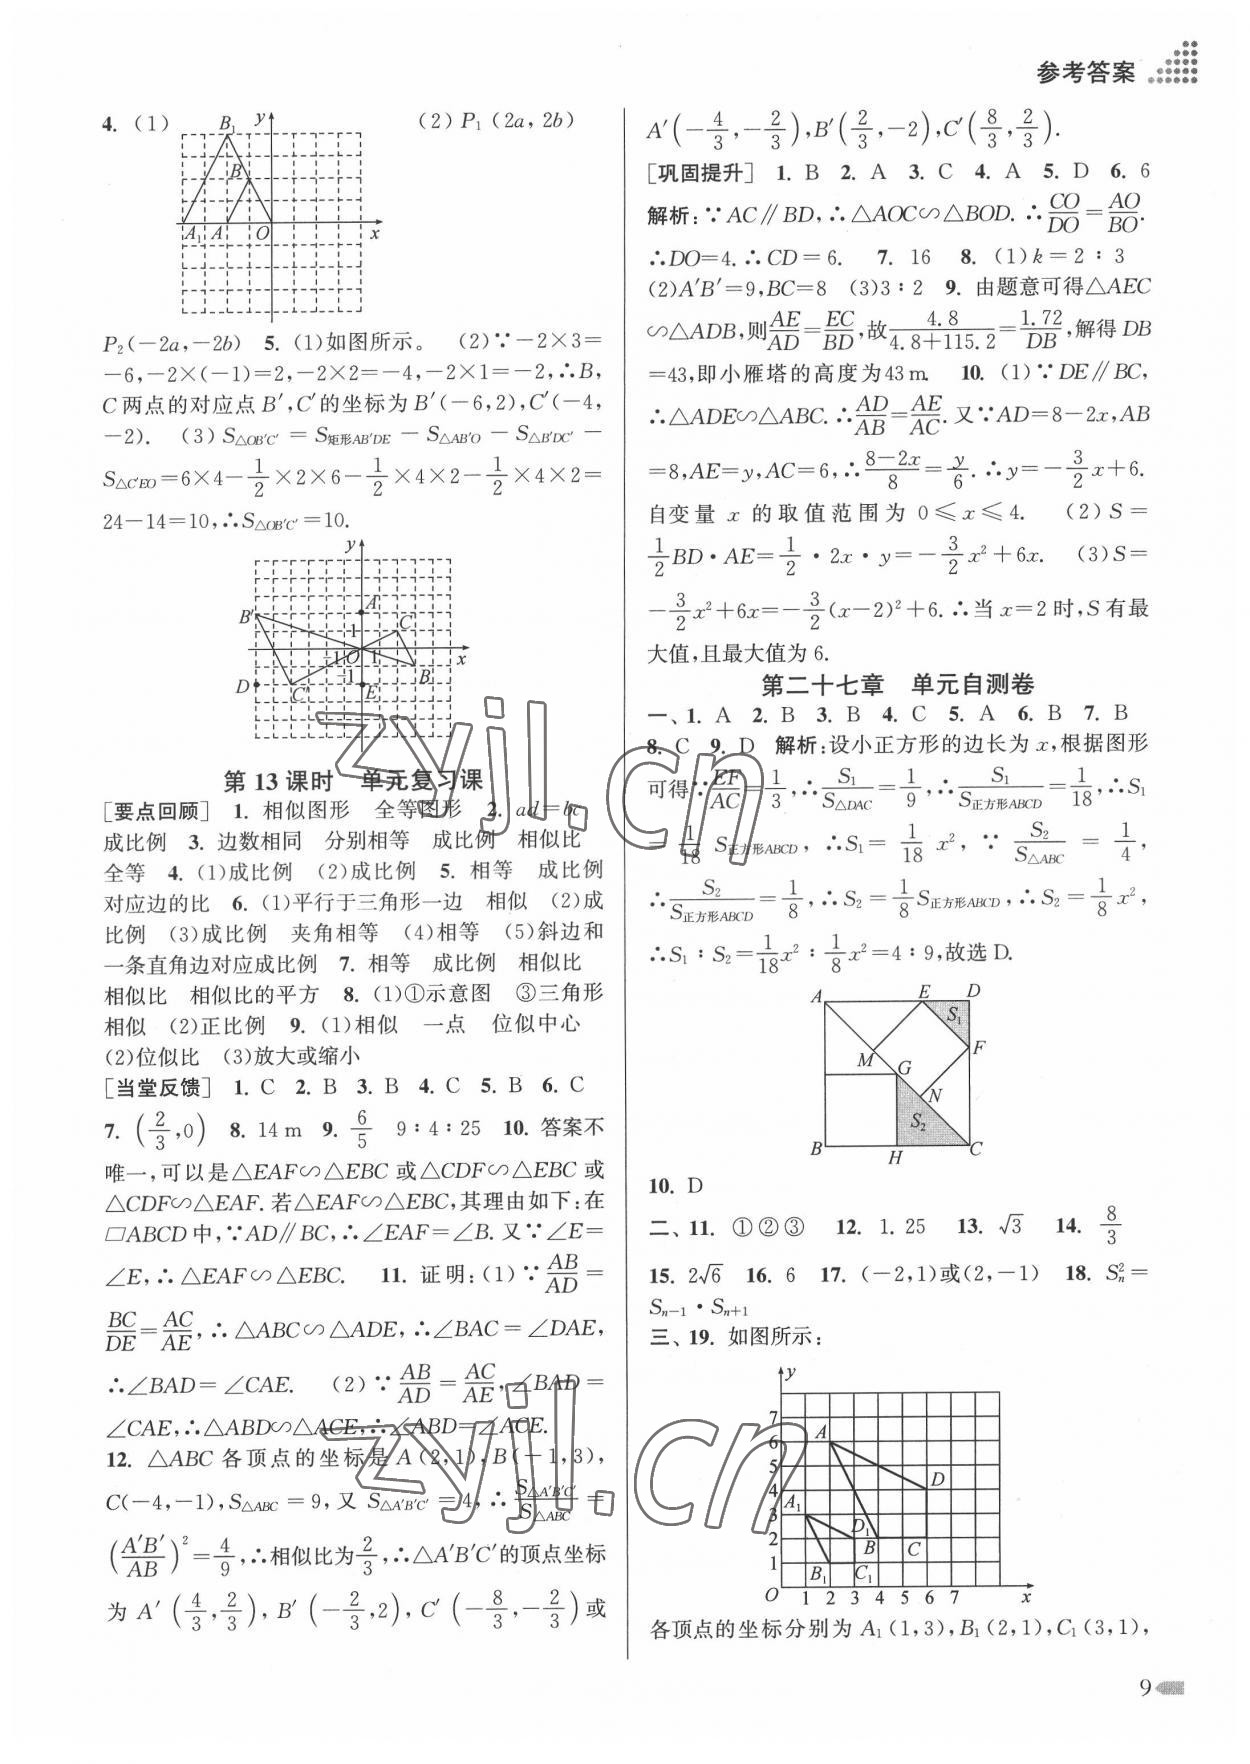 参考答案
4. (1)
(2) P₁(2a, 2b)
B₁ y
B
A₁ A O x
P₂(−2a,−2b) 5. (1)如图所示。 (2)∵−2×3=
−6,−2×(−1)=2,−2×2=−4,−2×1=−2,∴B,
C两点的对应点B′,C′的坐标为B′(−6,2),C′(−4,
−2). (3) S△OB′C′ = S矩形AB′DE − S△AB′O − S△B′DC′ −
S△C′EO=6×4−1/2×2×6−1/2×4×2−1/2×4×2=
24−14=10,∴S△OB′C′=10.
y
A
B′ C
1
−1 O 1 x
−1 B
D C′ E
第13课时 单元复习课
[要点回顾] 1. 相似图形 全等图形 2. ad=bc
成比例 3. 边数相同 分别相等 成比例 相似比
全等 4. (1)成比例 (2)成比例 5. 相等 成比例
对应边的比 6. (1)平行于三角形一边 相似 (2)成
比例 (3)成比例 夹角相等 (4)相等 (5)斜边和
一条直角边对应成比例 7. 相等 成比例 相似比
相似比 相似比的平方 8. (1)①示意图 ③三角形
相似 (2)正比例 9. (1)相似 一点 位似中心
(2)位似比 (3)放大或缩小
[当堂反馈] 1. C 2. B 3. B 4. C 5. B 6. C
7. (2/3,0) 8. 14 m 9. 6/5 9∶4∶25 10. 答案不
唯一,可以是△EAF∽△EBC或△CDF∽△EBC或
△CDF∽△EAF.若△EAF∽△EBC,其理由如下:在
□ABCD中,∵AD∥BC,∴∠EAF=∠B.又∵∠E=
∠E,∴△EAF∽△EBC. 11. 证明:(1)∵AB/AD=
BC/DE=AC/AE,∴△ABC∽△ADE,∴∠BAC=∠DAE,
∴∠BAD=∠CAE. (2)∵AB/AD=AC/AE,∠BAD=
∠CAE,∴△ABD∽△ACE,∴∠ABD=∠ACE.
12. △ABC各顶点的坐标是A(2,1),B(−1,3),
C(−4,−1),S△ABC=9,又S△A′B′C′=4,∴S△A′B′C′/S△ABC=
(A′B′/AB)²=4/9,∴相似比为2/3,∴△A′B′C′的顶点坐标
为A′(4/3,2/3),B′(−2/3,2),C′(−8/3,−2/3)或
A′(−4/3,−2/3),B′(2/3,−2),C′(8/3,2/3).
[巩固提升] 1. B 2. A 3. C 4. A 5. D 6. 6
解析:∵AC∥BD,∴△AOC∽△BOD.∴CO/DO=AO/BO.
∴DO=4.∴CD=6. 7. 16 8. (1)k=2∶3
(2)A′B′=9,BC=8 (3)3∶2 9. 由题意可得△AEC
∽△ADB,则AE/AD=EC/BD,故4.8/(4.8+115.2)=1.72/DB,解得DB
=43,即小雁塔的高度为43 m. 10. (1)∵DE∥BC,
∴△ADE∽△ABC.∴AD/AB=AE/AC.又∵AD=8−2x,AB
=8,AE=y,AC=6,∴(8−2x)/8=y/6.∴y=−3/2x+6.
自变量x的取值范围为0≤x≤4. (2)S=
1/2BD·AE=1/2·2x·y=−3/2x²+6x. (3)S=
−3/2x²+6x=−3/2(x−2)²+6.∴当x=2时,S有最
大值,且最大值为6.
第二十七章 单元自测卷
一、1. A 2. B 3. B 4. C 5. A 6. B 7. B
8. C 9. D 解析:设小正方形的边长为x,根据图形
可得∵EF/AC=1/3,∴S₁/S△DAC=1/9,∴S₁/S正方形ABCD=1/18,∴S₁
=1/18 S正方形ABCD,∴S₁=1/18x²,∵S₂/S△ABC=1/4,
∴S₂/S正方形ABCD=1/8,∴S₂=1/8S正方形ABCD,∴S₂=1/8x²,
∴S₁∶S₂=1/18x²∶1/8x²=4∶9,故选D.
A E D
S₁
M G F
N
S₂
B H C
10. D
二、11. ①②③ 12. 1.25 13. √3 14. 8/3
15. 2√6 16. 6 17. (−2,1)或(2,−1) 18. Sₙ²=
Sₙ₋₁·Sₙ₊₁
三、19. 如图所示:
y
7
6 A
5 D
4
A₁
3
2 D₁ B C
1 B₁ C₁
O 1 2 3 4 5 6 7 x
各顶点的坐标分别为A₁(1,3),B₁(2,1),C₁(3,1),
9
zyjl.cn
zyjl.cn